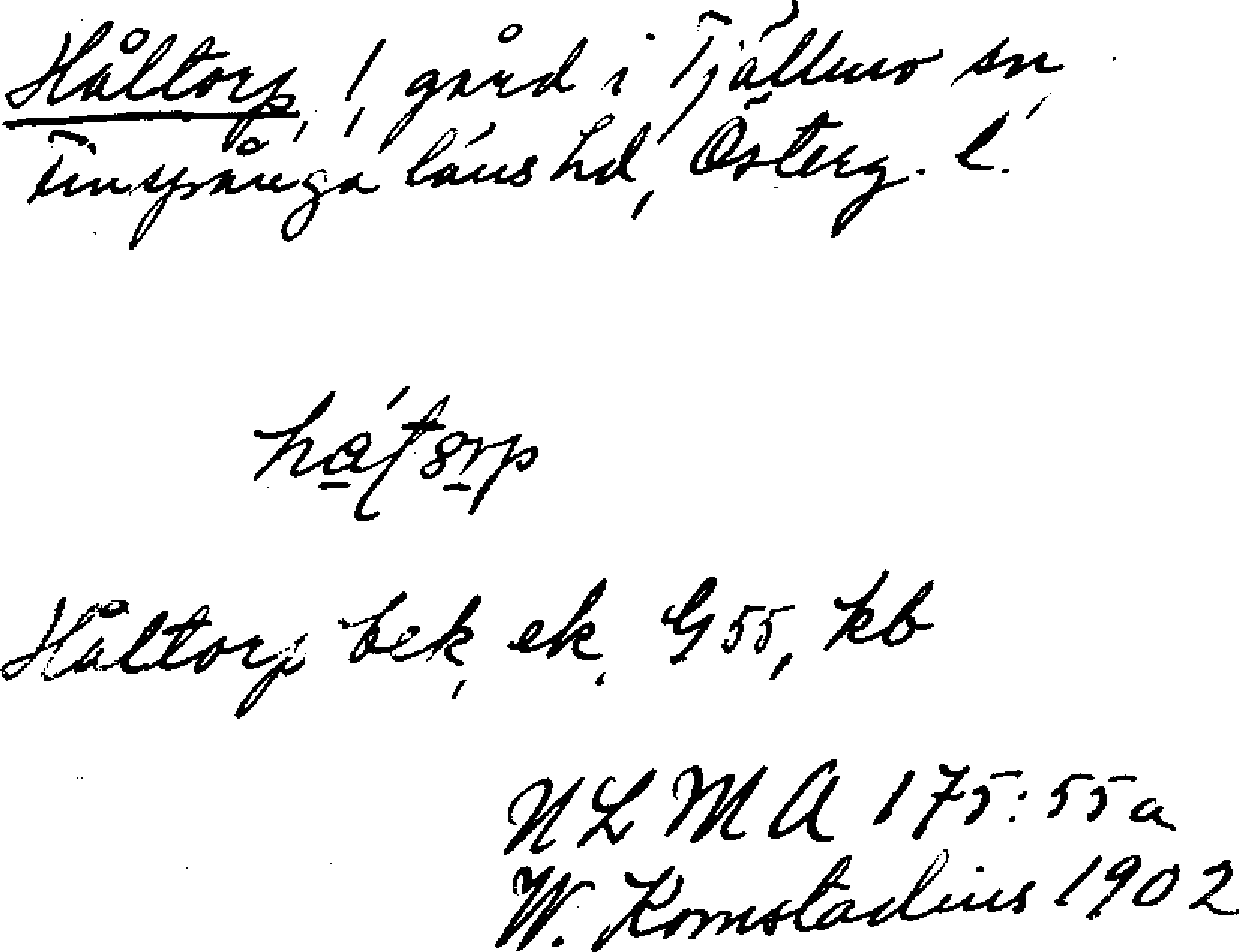 Håltorp, 1, gård i Tjällmo sn,
Finspånga läns hd, Österg. l.
Håltorp bek, ek. G 55, kb
NLMA 175:55a
W. Komstadius 1902